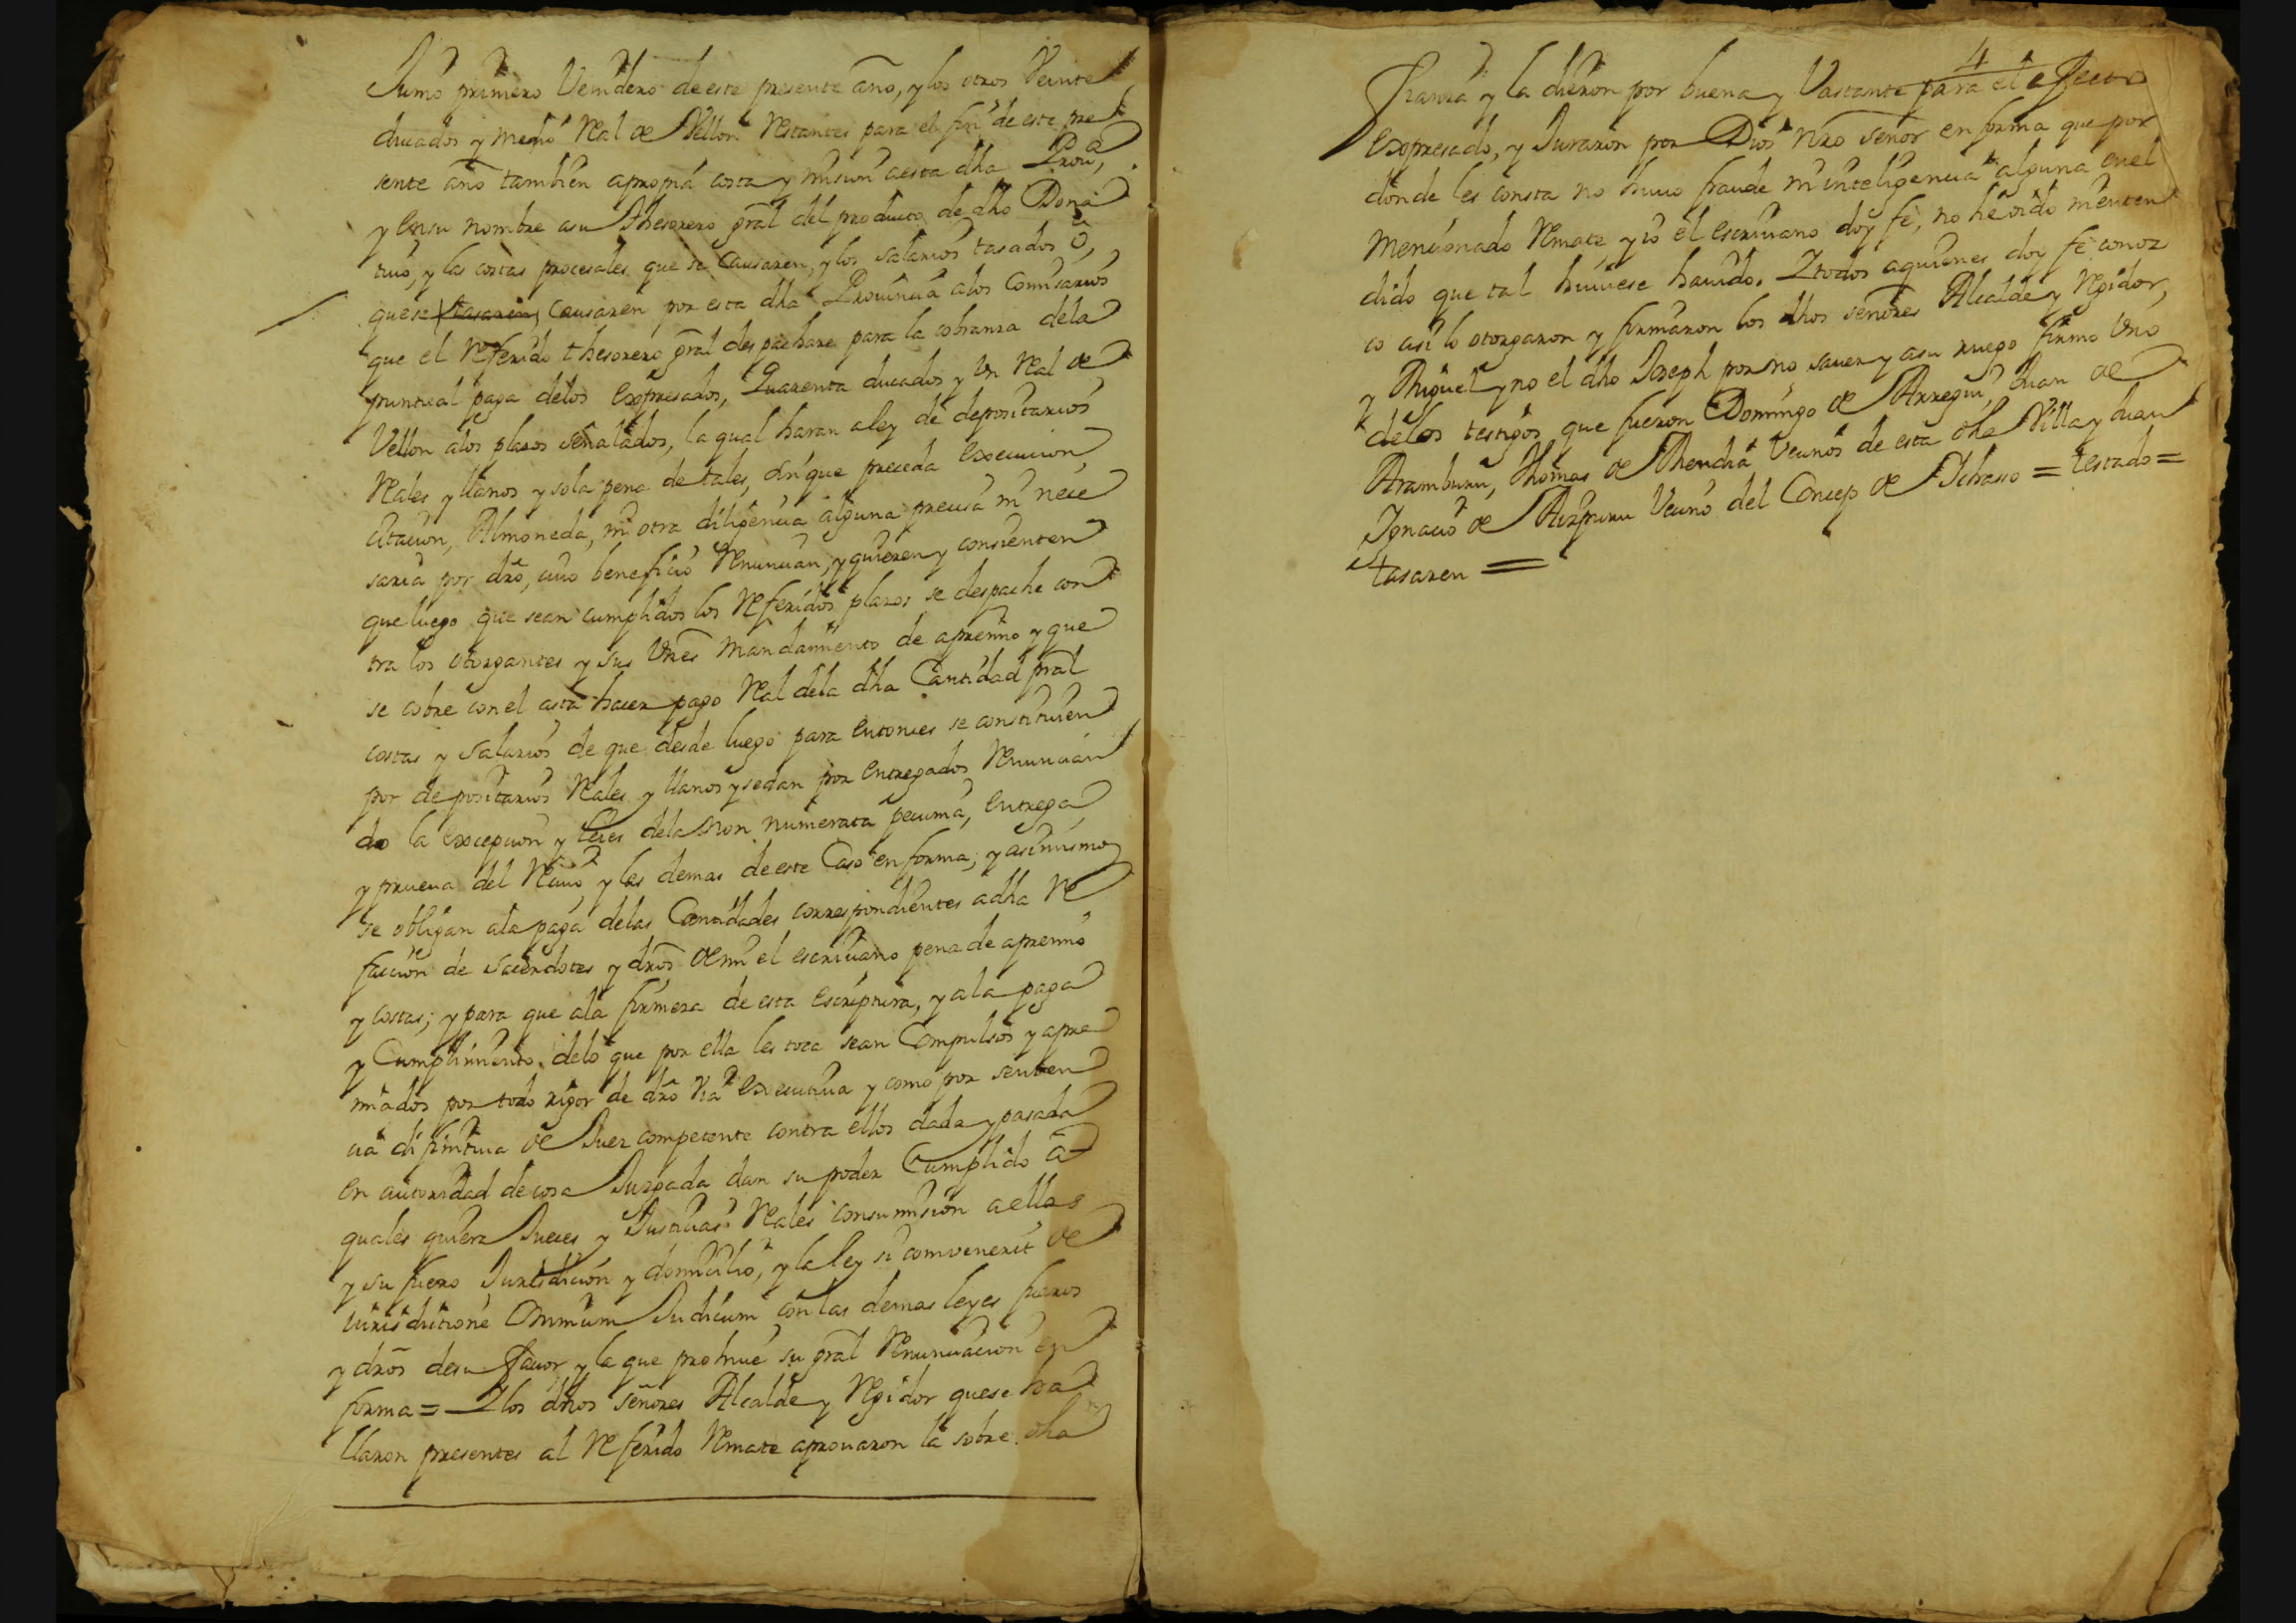 Junio primero Venidero de este presente año, y los otros Veinte
ducados y medio Real de Vellon Restantes para el fin de este pre
sente año tambien a propria costa y mision a esta dha Prov.ª,
y en su nombre a su Thesorero gral del producto de dho Dona
tiuo, y las costas procesales que se Causaren, y los salarios tasados ô,
que se tasaren Causaren por esta dha Prouincia a los Comisarios
que el Referido thesorero gral despachare para la cobranza dela
puntual paga delos Expresados, Quarenta ducados y Vn Real de
Vellon alos plazos señalados, la qual haran a ley de depositarios
Reales y llanos y sola pena de tales, sin que preceda Execucion,
Citacion, Almoneda, ni otra diligencia alguna precisa ni nece
saria por dro, cuio beneficio Renuncian, y quieren y consienten
que luego que sean cumplidos los Referidos plazos se despache con
tra los otorgantes y sus Vnes mandamiento de apremio y que
se cobre con el asta hacer pago Real dela dha Cantidad pral
costas y salarios de que desde luego para Entonces se constituien
por depositarios Reales y llanos y sedan por Entregados Renuncian
do la excepcion y leies dela non numerata pecunia, Entrega,
y prueua del Reciuo, y las demas de este Caso en forma; y asimismo
se obligan ala paga delas Cantidades correspondientes a dha Re
faccion de sacerdotes y dros de mi el escriuano pena de apremio
y costas; y para que ala firmeza de esta Escriptura, y ala paga
y Cumplimiento delo que por ella les toca sean Compulsos y apre
miados por todo rigor de dro Via Executiua y como por senten
cia difinitiua de Juez competente contra ellos dada y pasada
en autoridad de cosa Juzgada dan su poder Cumplido â
quales quiera Jueces y Justicias Reales consumision a ellas
y su fuero Jurisdicion y domicilio, y la ley si convenerit de
iurisdictione Omnium Judicum con las demas leyes fueros
y dros desu fauor y la que prohiue su gral Renunciacion en
forma = Y los dhos señores Alcalde y Regidor que se ha
llaron presentes al Referido Remate aprouaron la sobre dha
4
Fianza y la dieron por buena y Vastante para el efecto
Expresado, y Juraron por Dios nro señor en forma que por
donde les consta no huuo fraude ni inteligencia alguna en el
mencionado Remate, y io el escriuano doy fe, no he oido ni enten
dido que tal huuiese hauido. Y todos a quienes doy fe conoz
co asi lo otorgaron y firmaron los dhos señores Alcalde y Regidor,
y Miguel y no el dho Joseph por no sauer y a su ruego firmo Vno
delos testigos que fueron Domingo de Arregui, Juan de
Aramburu, Thomas de Mendia Vecinos de esta dha Villa y Juan
Ignacio de Aizpuru Vecino del Concejo de Ichasso = testado =
tasaren =